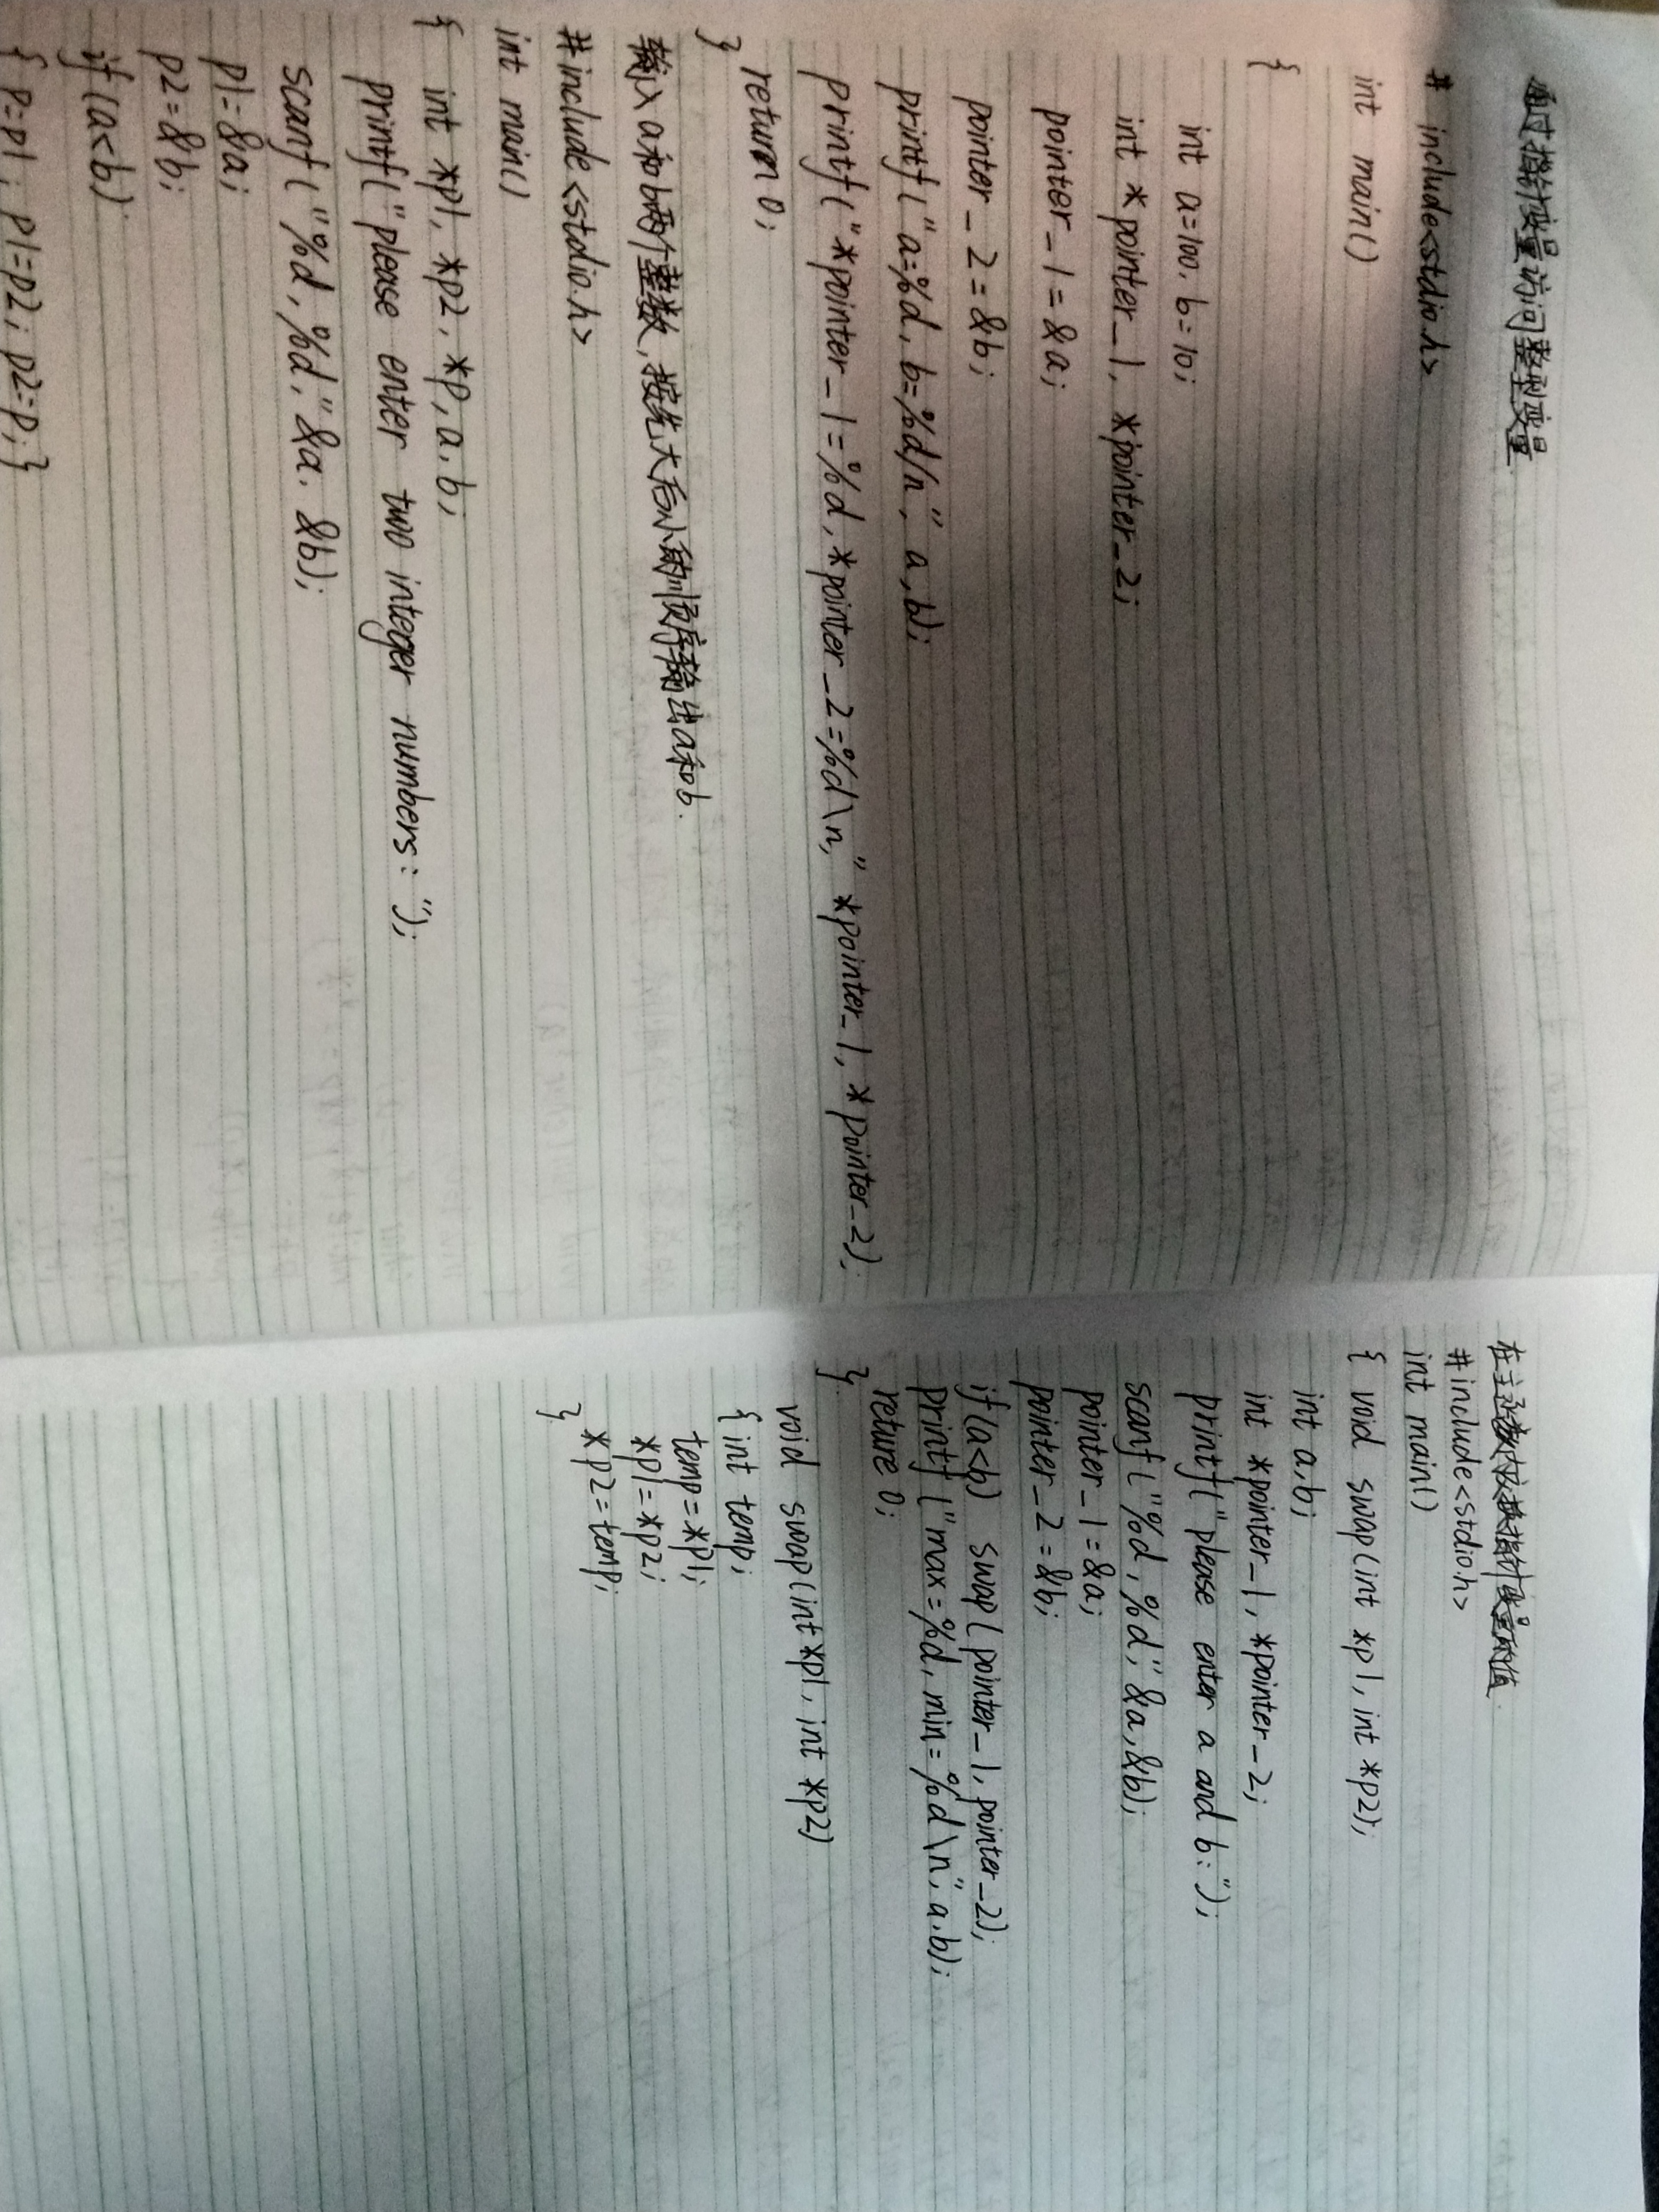 通过指针变量访问整型变量.
# include<stdio.h>
int main()
{
int a=100, b=10;
int * pointer_1, *pointer_2;
pointer_1 = &a;
pointer_2 = &b;
printf("a=%d, b=%d/n", a,b);
printf("*pointer_1=%d,*pointer_2=%d\n," *pointer_1, *pointer_2);
return 0;
}
输入a和b两个整数,按先大后小的顺序输出a和b.
#include<stdio.h>
int main()
{ int *p1, *p2, *p,a,b;
printf("please enter two integer numbers:");
scanf("%d,%d," &a, &b);
p1=&a;
p2=&b;
if(a<b)
{ p=p1; p1=p2; p2=p; }
在主函数中交换指针变量的值.
#include<stdio.h>
int main()
{ void swap(int *p1, int *p2);
int a,b;
int *pointer_1, *pointer_2;
printf("please enter a and b:");
scanf("%d,%d," &a,&b);
pointer_1=&a;
pointer_2=&b;
if(a<b) swap(pointer_1, pointer_2);
printf("max=%d, min=%d\n", a,b);
reture 0;
}
void swap(int *p1, int *p2)
{ int temp;
temp=*p1;
*p1=*p2;
*p2=temp;
}